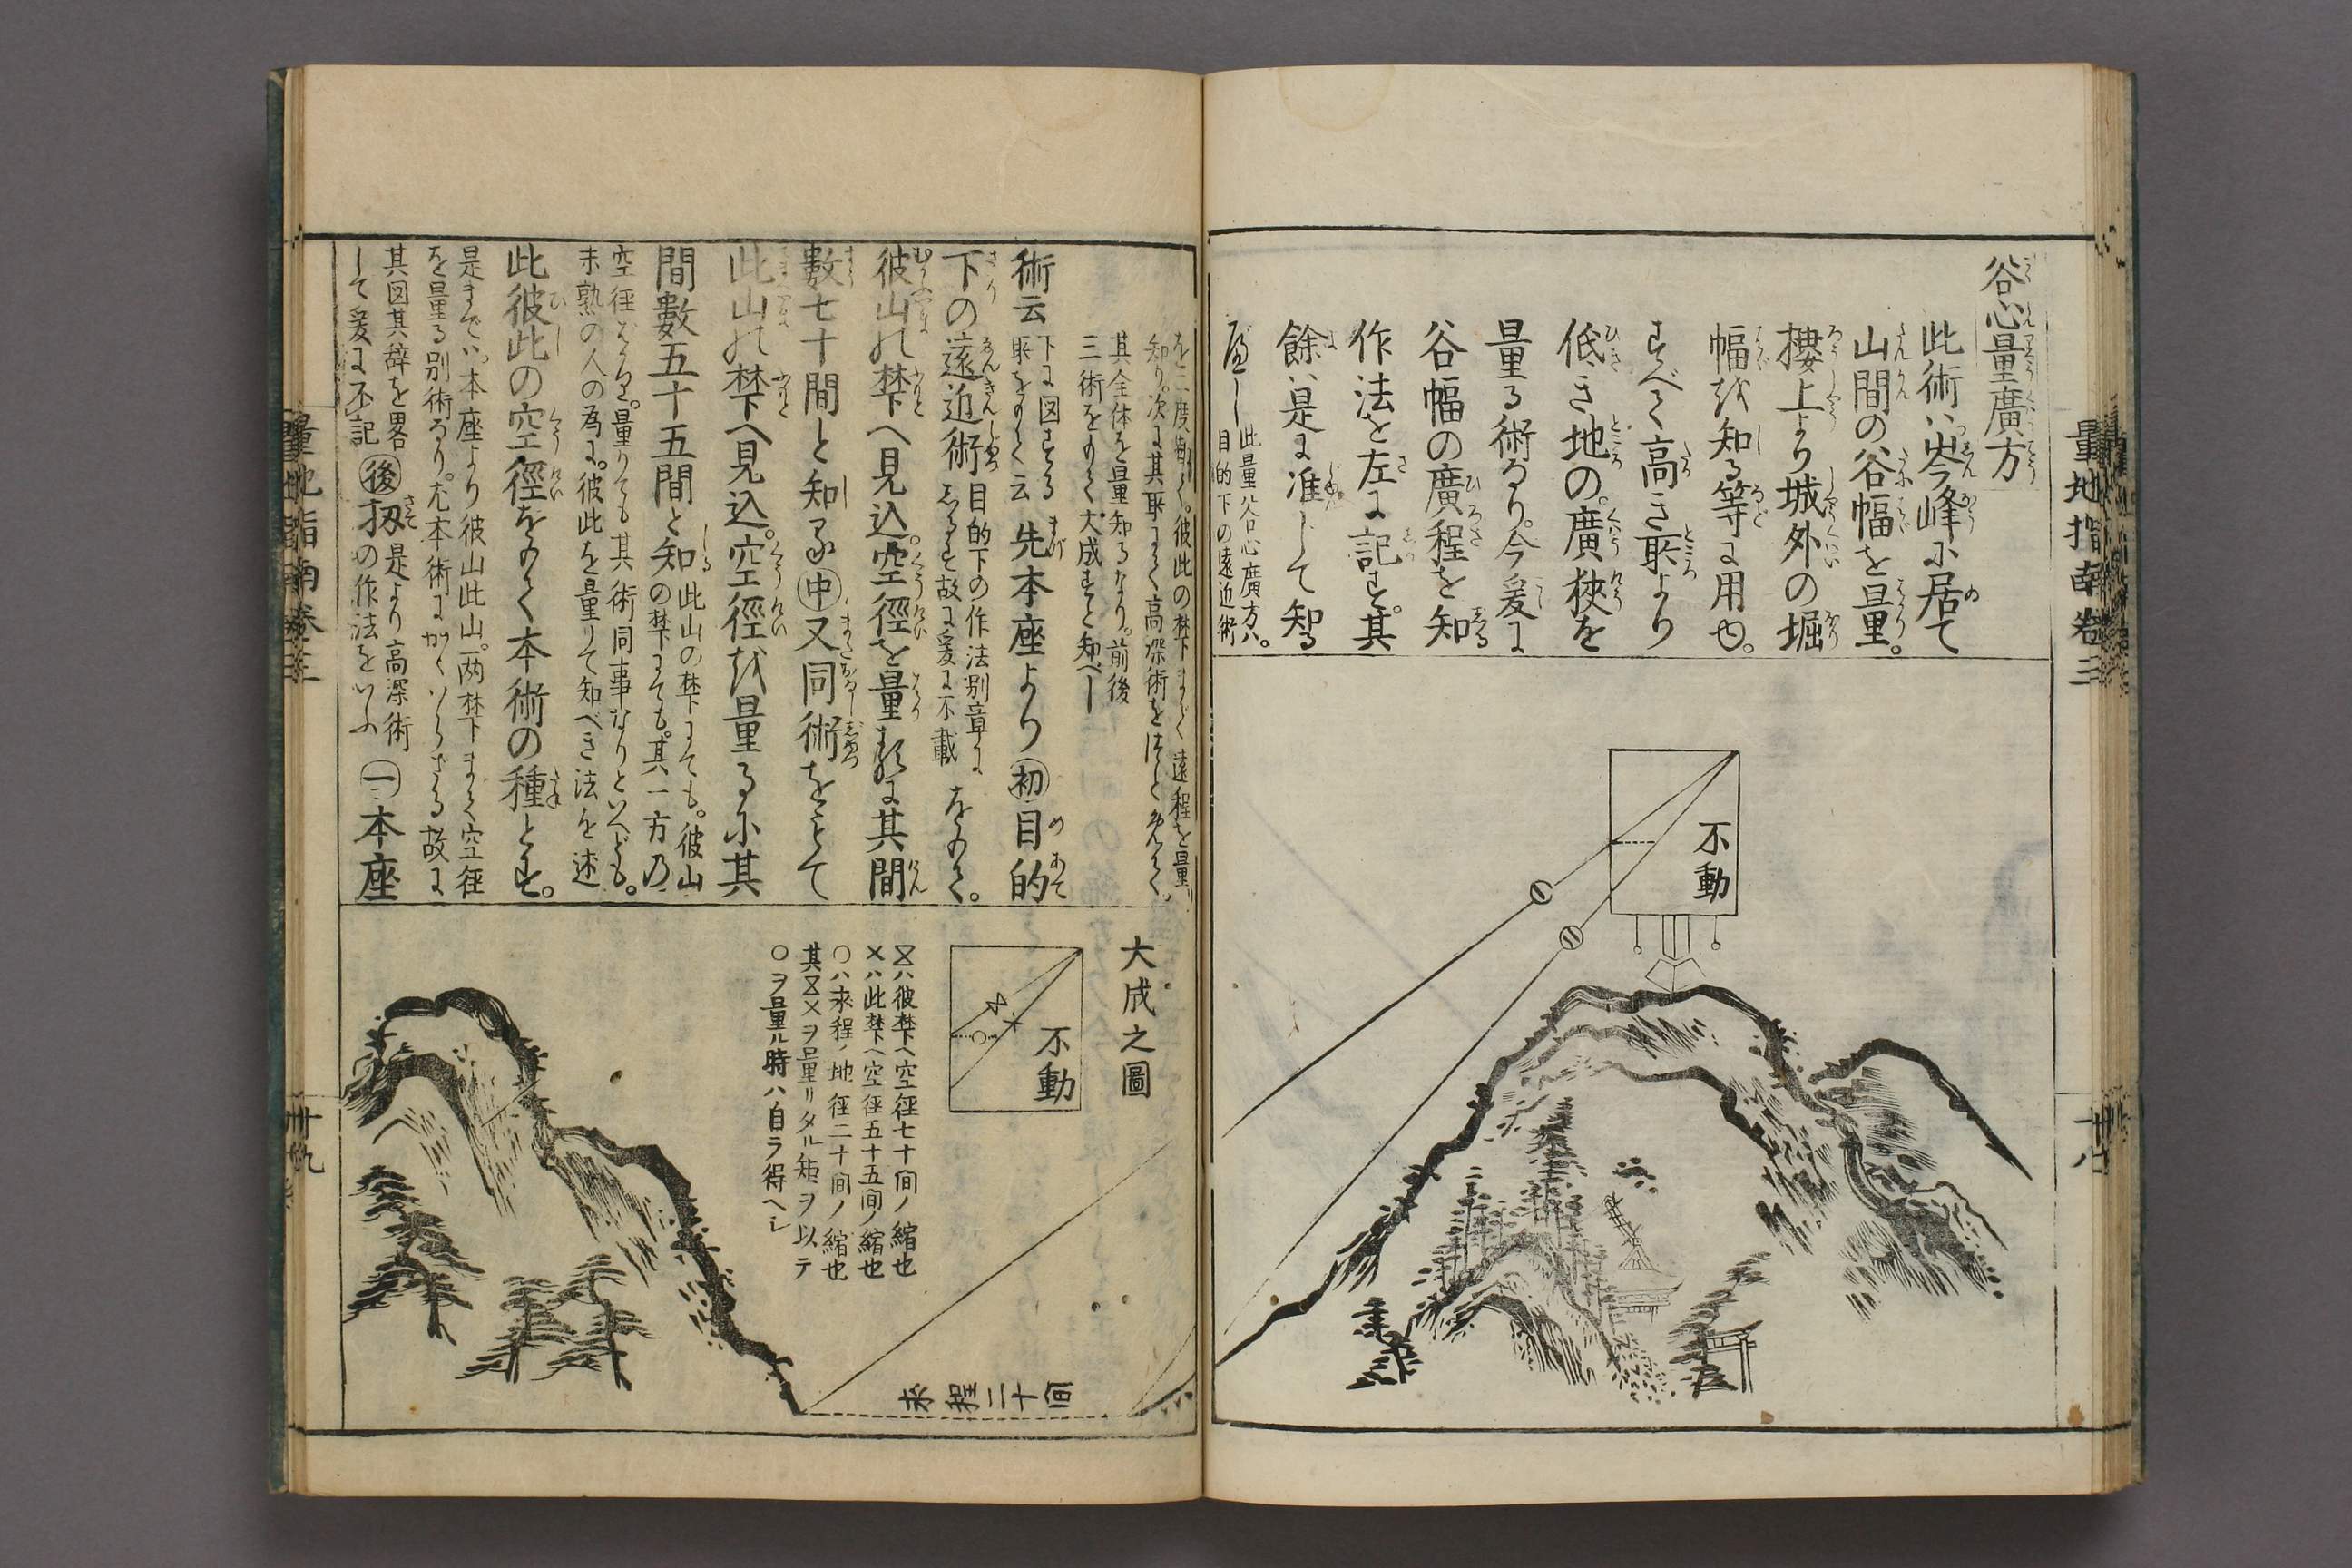 谷心量廣方
此術ハ岑峰に居て
山間の谷幅を量。
樓上より城外の堀
幅を知る等に用也。
すべて高き所より
低き地の。廣狹を
量る術なり。今爰に
谷幅の廣程を知
作法を左に記す。其
餘ハ是に准じて知る
べし
此量谷心廣方ハ。
目的下の遠近術
不動
一
二
量地指南卷三
を二度
知り。次に其所にて高深術を
其全体を量知るなり。前後
三術をもつて大成すと知べし
術云
下に図する
所をもつて云
先本座より初目的
下の遠近術
目的下の作法別章に
あるを故に爰に不載
をもつて。
彼山の禁下へ見込。空徑を量るに其間
數七十間と知る中又同術をもつて
此山の禁下へ見込。空徑を量るに其
間數五十五間と知る
此山の禁下にても。彼山
の禁下にても。其一方乃
空徑ばかり。量りても其術同事なりといへども。
未熟の人の為に。彼此を量りて知べき法を述
此彼此の空徑をもつて本術の種とす。
是まで ハ。本座より彼山此山。両禁下まで空徑
を量る別術なり。尤本術にかくいらざる故に
其図其辞を畧
して爰に不記
後扨
是より高深術
の作法をいふ
一本座
大成之圖
不動
ハ彼禁下ヘ空徑七十間ノ縮也
×ハ此禁下ヘ空徑五十五間ノ縮也
○ハ求程ノ地徑二十間ノ縮也
其×ヲ量リタル矩ヲ以テ
○ヲ量ル時ハ自ラ得ヘシ
求程二十間
量地指南卷三
卅九